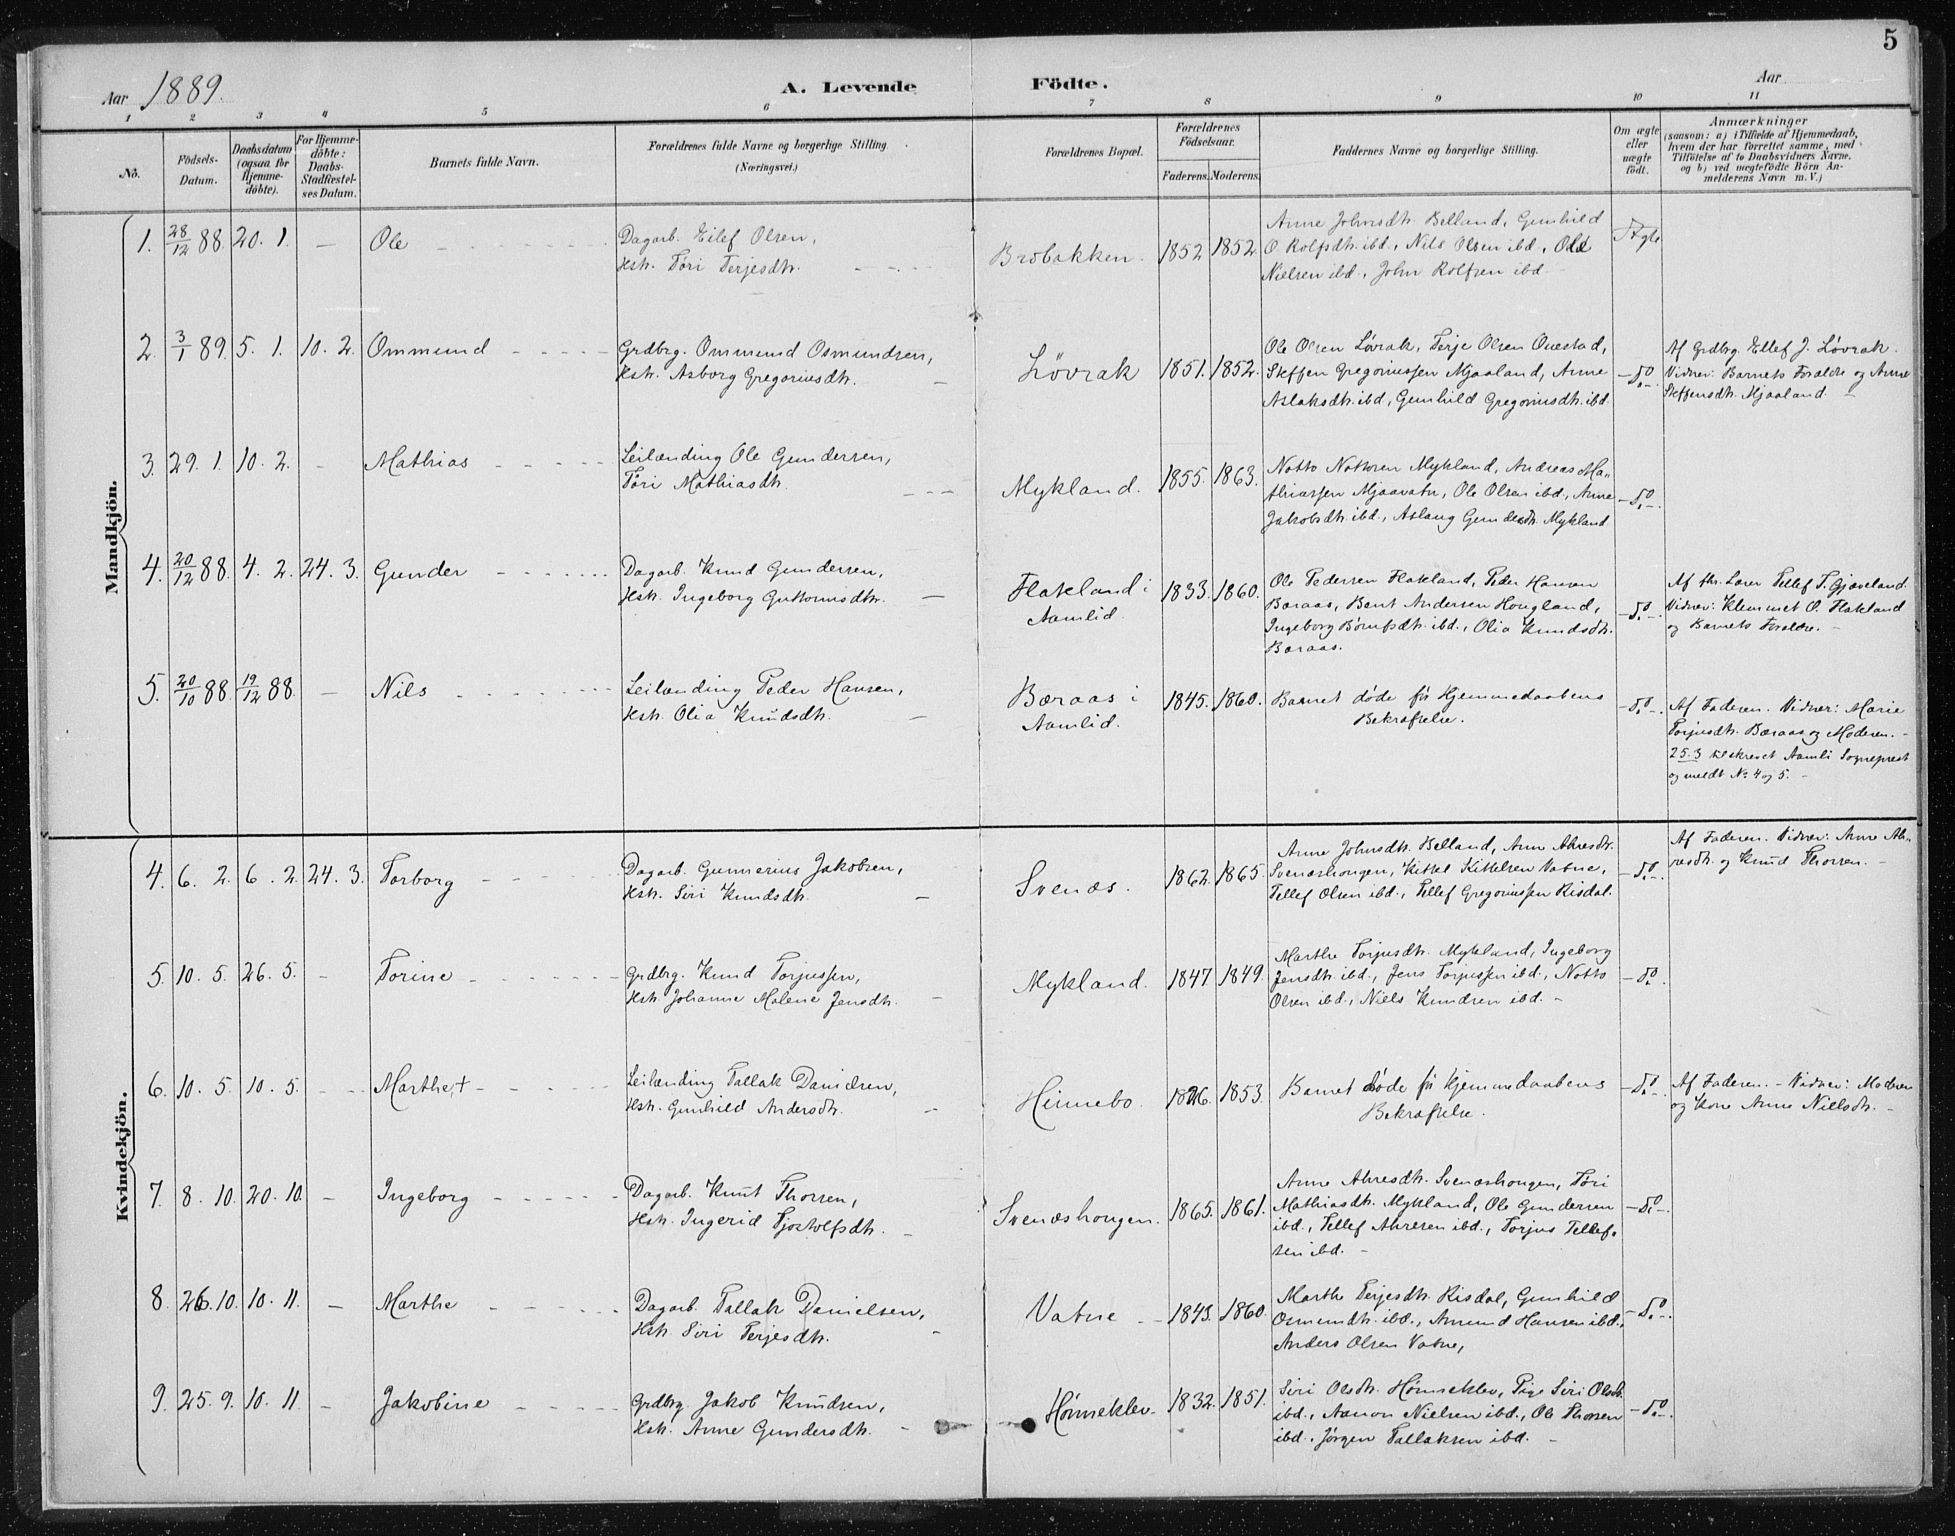 5
Aar 1889. A. Levende Födte. Aar
1 2 3 4 5 6 7 8 9 10 11
No. Födsels-Datum. Daabsdatum (ogsaa for Hjemmedöbte). For Hjemmedöbte: Daabs-Stadfestelses Datum. Barnets fulde Navn. Forældrenes fulde Navne og borgerlige Stilling (Næringsvei.) Forældrenes Bopæl. Forældrenes Födselsaar. Faderens. Moderens. Faddernes Navne og borgerlige Stilling. Om ægte eller uægte födt. Anmærkninger
(saasom: a) i Tilfælde af Hjemmedaab,
hvem der har forrettet samme, med
Tilföielse af to Daabsvidners Navne,
og b) ved uægtefödte Börn An-
melderens Navn m. V.)
Mandkjön.
1. 28/12 88. 20. 1. — Ole
Dagarb. Eilef Olsen,
Hstr. Tóri Terjesdtr.
Brobakken. 1852 1852
Anne Johnsdtr. Belland, Gunhild
O Rolfsdtr. ibd., Nils Olsen ibd., Ole
Nielsen ibd., John Rolfsen ibd. —
Ægte
2. 3/1 89. 5. 1. 10. 2. Ommund
Grdbrg. Ommund Osmundsen,
Hstr. Asborg Gregoriusdtr.
Løvrak 1851. 1852.
Ole Olsen Løvrak, Terje Olsen Ouestad,
Steffen Gregoriussen Mjaaland, Anne
Aslaksdtr. ibd., Gunhild Gregoriusdtr. ibd
— do —
Af Grdbrg. Ellef J. Løvrak.
Vidner: Barnets Forældre og Anne
Steffensdtr. Mjaaland. —
3. 29. 1. 10. 2. — Mathias
Leilænding Ole Gundersen,
Tóri Mathiasdtr.
Mykland. 1855. 1863.
Notto Nottosen Mykland, Andreas Ma-
thiassen Mjaavatn, Ole Olsen ibd., Anne
Jakobsdtr. ibd., Aslaug Gundersdtr. Mykland
— do —
4. 20/12 88. 4. 2. 24. 3. Gunder
Dagarb. Knud Gundersen,
Hstr. Ingeborg Guttormsdtr. —
Flakland i
Aamlid. 1833. 1860.
Ole Pedersen Flakland, Peder Hansen
Baraas, Bent Andersen Hougland,
Ingeborg ibd., Olia Knudsdtr.
Baraas.
— do —
Af fhv. Lærer Tellef T. Gjæveland
Vidner: Klemmet O. Flakland
og Barnets Forældre. —
5. 20/10 88. 19/12 88. — Nils
Leilænding Peder Hansen,
Hstr. Olia Knudsdtr. —
Bæraas i
Aamlid. 1845. 1860.
Barnet døde før Hjemmedaabens
Bekræftelse.
— do —
Af Faderen. Vidner: Marie
Torjusdtr. Bæraas og Moderen. —
25.3 tilskrevet Aamli Sogneprest
og meldt No 4 og 5. —
Kvindekjön.
4. 6. 2. 6. 2. 24. 3. Torborg
Dagarb. Gunnerius Jakobsen,
Hstr. Siri Knudsdtr. —
Svenæs. 1862. 1865.
Anne Johnsdtr. Belland, Anne Ahresdtr.
Svenæshougen, Kittel Kittelsen Vatne,
Tellef Olsen ibd., Tellef Gregoriussen Risdal.
— do —
Af Faderen. Vidner: Anne Ah-
resdtr. og Knud Thorsen. —
5. 10. 5. 26. 5. — Torine
Grdbrg. Knud Torjussen,
Hstr. Johanne Malene Jensdtr. —
Mykland. 1847 1849.
Marthe Torjusdtr. Mykland, Ingeborg
Jensdtr. ibd., Jens Torjussen ibd., Notto
Olsen ibd., Niels Knudsen ibd. —
— do —
6. 10. 5. 10. 5. — Marthe, +
Leilænding Tallak Danielsen,
Hstr. Gunhild Andersdtr. —
Hinnebo 1826. 1853.
Barnet døde før Hjemmedaabens
Bekræftelse.
— do —
Af Faderen. — Vidner: Moderen
og Kone Anne Nielsdtr. —
7. 8. 10. 20. 10. — Ingeborg
Dagarb. Knut Thorsen,
Hstr. Ingerid Tjostolfsdtr. —
Svenæshougen. 1865. 1861.
Anne Ahresdtr. Svenæshougen, Tóri
Mathiasdtr. Mykland, Ole Gundersen
ibd., Tellef Ahresen ibd., Torjus Tellef-
sen ibd. —
— do —
8. 26. 10. 10. 11. — Marthe
Dagarb. Tallak Danielsen,
Hstr. Siri Terjesdtr. —
Vatne 1843. 1860.
Marthe Terjesdtr. Risdal, Gunhild
Osmundtr. ibd., Amund Hansen ibd.,
Anders Olsen Vatne,
— do —
9. 25. 9. 10. 11. — Jakobine
Grdbrg. Jakob Knudsen,
Hstr. Anne Gundersdtr. —
Hønneklev. 1832. 1851.
Siri Olsdtr. Hønneklev, Pige Siri Olsdtr.
ibd., Aanon Nielsen ibd., Ole Thorsen
ibd., Jørgen Tallaksen ibd. —
— do —